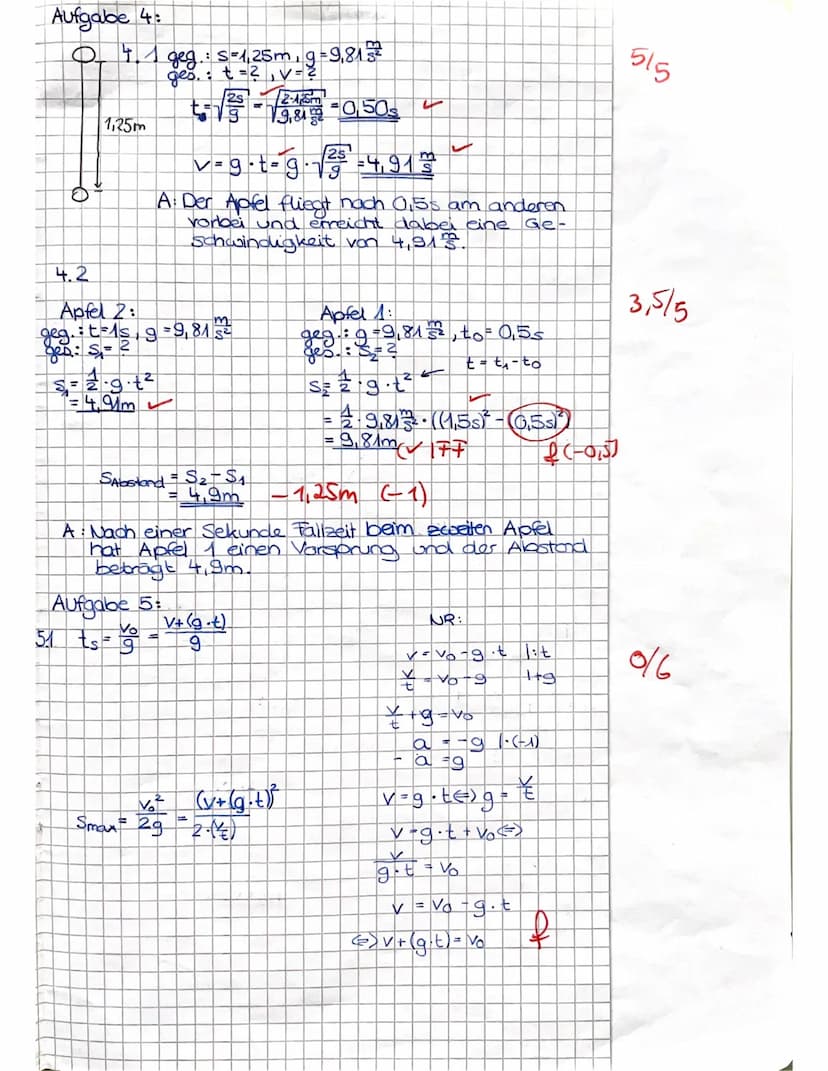 Aufgabe 4:
4.1 geg.: s=1,25m, g=9,81 m/s²
5/5
ges.: t=?, v=?
t₀=√(2s/g) = √(2·1,25m/9,81 m/s²) = 0,50s ✓
1,25m
v = g · t = g · √(2s/g) = 4,91 m/s ✓
A: Der Apfel fliegt nach 0,5s am anderen
vorbei und erreicht dabei eine Ge-
schwindigkeit von 4,91 m/s.
4.2
3,5/5
Apfel 2:
geg.: t=1s, g=9,81 m/s²
ges.: s₁=?
s₁ = 1/2 · g · t²
= 4,91m ✓
Apfel 1:
geg.: g=9,81 m/s², t₀=0,5s
ges.: s₂=?
t = t₁-t₀
s₂ = 1/2 · g · t²
= 1/2 · 9,81 m/s² · ((1,5s)² - (0,5s)²)
= 9,81m (✓) FF
f (-0,5)
S Abstand = S₂ - S₁
= 4,9m - 1,25m (-1)
A: Nach einer Sekunde Fallzeit beim zweiten Apfel
hat Apfel 1 einen Vorsprung und der Abstand
beträgt 4,9m.
Aufgabe 5:
5.1 ts = v₀/g = v+(g·t)/g
0/6
Smax = v₀²/2g = (v+(g·t))²/2·(v/t)
NR:
v = v₀ - g · t |:t
v/t = v₀ - g |+g
v/t + g = v₀
a = -g |·(-1)
- a = g
v = g · t ⇔ g = v/t
v = g · t + v₀ ⇔
v/g·t = v₀
v = v₀ - g · t
⇔ v+(g·t) = v₀
f